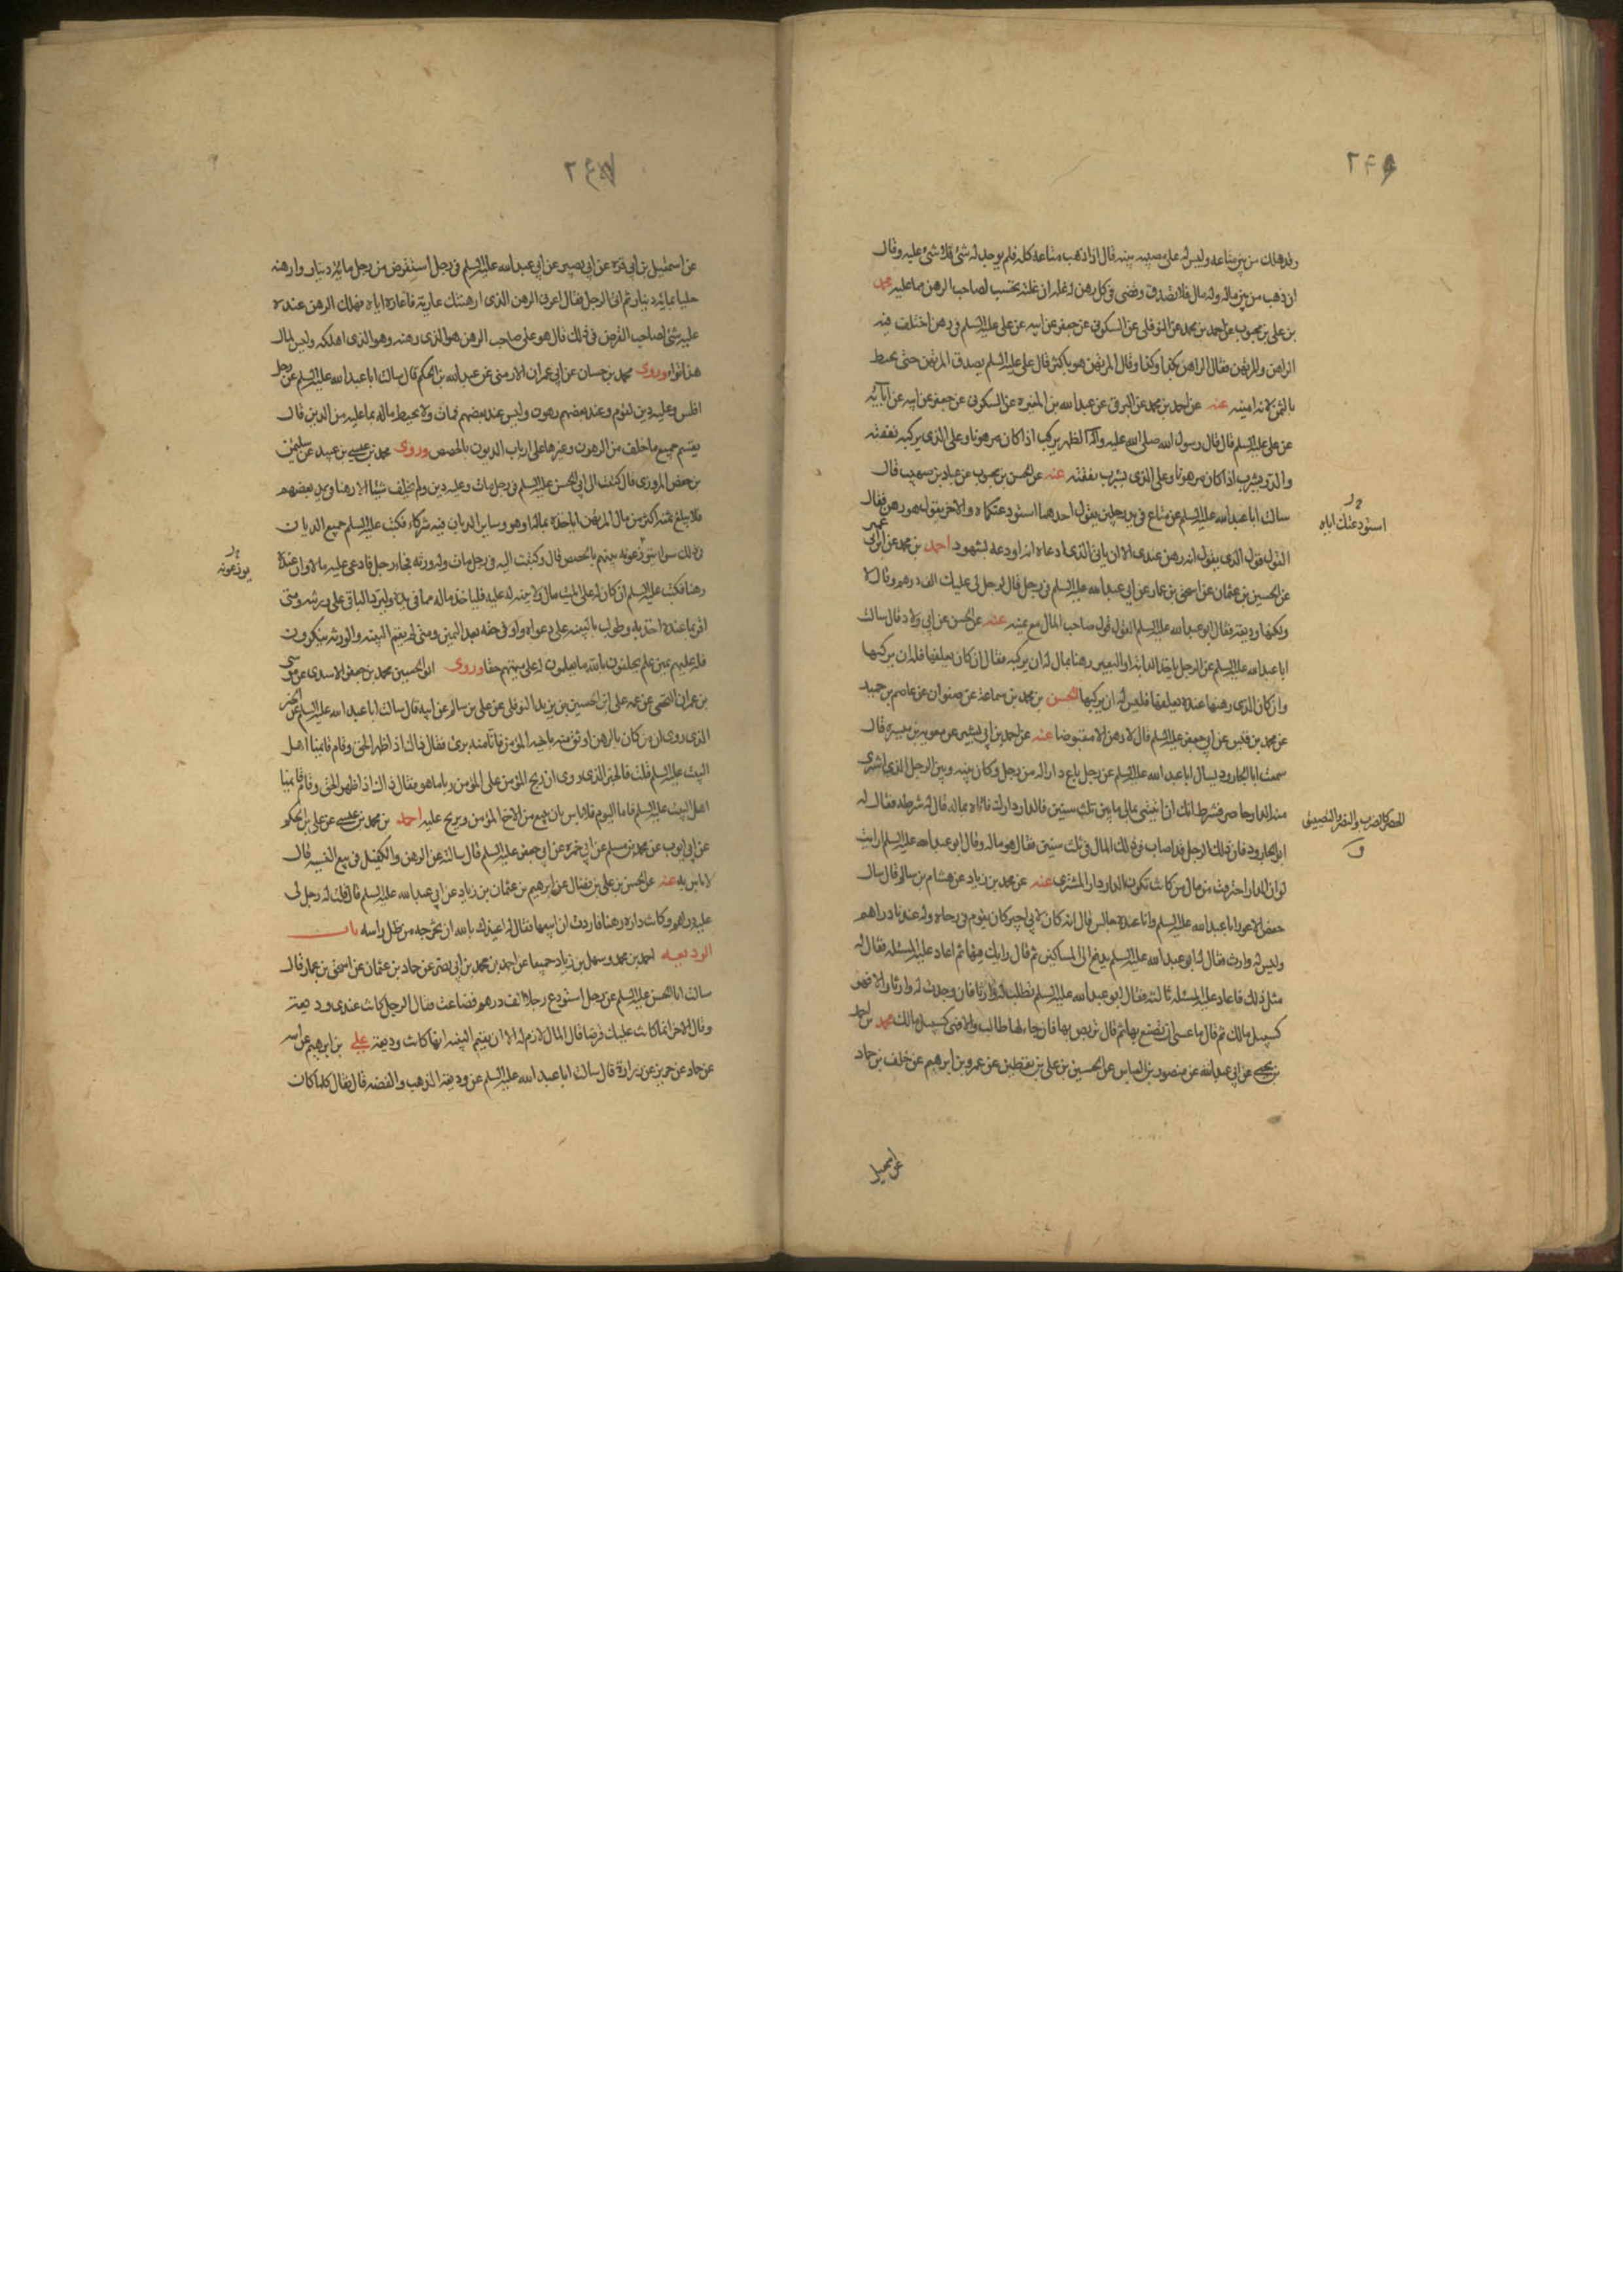 ٢٤٩
وقد هلك من بين متاعه وليس له على مصيبته بينة قال اذا ذهب متاعه كله فلم يوجد له شئ فلا شئ عليه وقال
ان ذهب من بين ماله وله مال فلا يصدق وقضى فى كل رهن له غلة ان غلته تحتسب لصاحب الرهن مما عليه محمد
بن على بن محبوب عن احمد بن محمد عن النوفلى عن السكونى عن جعفر عن ابيه عن على عليه السلم فى رهن اختلف فيه
الراهن والمرتهن فقال الراهن بكذا وكذا وقال المرتهن هو باكثر قال على عليه السلم يصدق المرتهن حتى يحيط
بالثمن لانه امينه عنه عن احمد بن محمد عن البرقى عن عبد الله بن المغيرة عن السكونى عن جعفر عن ابيه عن آبائه
عن على عليه السلم قال قال رسول الله صلى الله عليه وآله الظهر يركب اذا كان مرهونا وعلى الذى يركبه نفقته
والدر يشرب اذا كان مرهونا وعلى الذى يشرب نفقته عنه عن الحسن بن محبوب عن عباد بن صهيب قال
سالت ابا عبد الله عليه السلم عن متاع فى يد رجلين يقول احدهما استودعتكاه والاخر يقول هو رهن فقال
استودعتك اياه
القول قول الذى يقول انه رهن عندى الا ان ياتى الذى ادعاه انه اودعه بشهود احمد بن محمد عن ابن ابى عمير
عن الحسين بن عثمان عن اسحق بن عمار عن ابى عبد الله عليه السلم فى رجل قال لرجل لى عليك الف درهم وقال لا
ولكنها وديعة فقال ابو عبد الله عليه السلم القول قول صاحب المال مع يمينه عنه عن الحسن عن ابى ولاد قال سالت
ابا عبد الله عليه السلم عن الرجل ياخذ الدابة او البعير رهنا بماله له ان يركبه فقال ان كان يعلفها فله ان يركبها
وان كان الذى رهنها عنده يعلفها فليس له ان يركبها الحسن بن محمد بن سماعة عن صفوان عن عاصم بن حميد
عن محمد بن قيس عن ابى جعفر عليه السلم قال لا رهن الا مقبوضا عنه عن احمد بن ابى بشير عن معوية بن ميسرة قال
سمعت ابا الجارود يسال ابا عبد الله عليه السلم عن رجل باع دارا له من رجل وكان بينه وبين الرجل الذى اشترى
منه الدار حاصر فشرط انك ان اتيتنى بمالى ما بين ثلث سنين فالدار دارك فاتاه بماله قال له شرطه فقال له
ابو الجارود فان ذلك الرجل قد اصاب فى ذلك المال فى ثلث سنين فقال هو ماله وقال ابو عبد الله عليه السلم ارايت
لو ان الدار احترقت من مال من كانت تكون الدار دار المشترى عنه عن محمد بن زياد عن هشام بن سالم قال سال
حفص الاعور ابا عبد الله عليه السلم وانا عنده جالس قال انه كان لابى اجير كان يقوم فى رحاه وله عندنا دراهم
وليس له وارث فقال له ابو عبد الله عليه السلم يدفع الى المساكين ثم قال رايك فيها ثم اعاد عليه المسئلة فقال له
مثل ذلك فاعاد عليه المسئلة ثالثة فقال ابو عبد الله عليه السلم تطلب له وارثا فان وجدت له وارثا والا فهو
كسبيل مالك ثم قال ما عسى ان تصنع بها ثم قال توصى بها فان جاء لها طالب والا فهى كسبيل مالك محمد بن احمد
بن يحيى عن ابى عبد الله عن منصور بن العباس عن الحسين بن على بن يقطين عن عمرو بن ابرهيم عن خلف بن حماد
عن اسمعيل
عن اسمعيل بن ابى قرة عن ابى بصير عن ابى عبد الله عليه السلم فى رجل استقرض من رجل مائة دينار وارهنه
حليا بمائة دينار ثم اتى الرجل فقال اعرنى الرهن الذى ارهنتك عارية فاعاره اياه فهلك الرهن عنده
عليه شئ لصاحب القرض فى ذلك قال هو على صاحب الرهن هو الذى رهنه وهو الذى اهلكه وليس لمال
هذا توا وروى محمد بن حسان عن ابى عمران الارمنى عن عبد الله بن الحكم قال سالت ابا عبد الله عليه السلم عن رجل
افلس وعليه دين لقوم وعند بعضهم رهون وليس عند بعضهم فمات ولا يحيط ماله بما عليه من الدين قال
يقسم جميع ما خلف من الرهون وغيرها على ارباب الديون بالحصص وروى محمد بن عيسى بن عبيد عن سليمن
بن حفص المروزى قال كتبت الى ابى الحسن عليه السلم فى رجل مات وعليه دين ولم يخلف شيئا الا رهنا فى يد بعضهم
فلا يبلغ ثمنه اكثر من مال المرتهن اياخذه بماله او هو وساير الديان فيه شركاء فكتب عليه السلم جميع الديان
فى ذلك سواء يتوزعونه بينهم بالحصص قال وكتبت اليه فى رجل مات وله ورثة فجاء رجل فادعى عليه مالا وان عنده
يوزعونه
رهنا فكتب عليه السلم ان كان له على الميت مال ولا بينة له عليه فلياخذ ماله مما فى يده وليرد الباقى على ورثته ومتى
اقر بما عنده اخذ به وطولب بالبينة على دعواه واوفى حقه بعد اليمين ومتى لم يقم البينة والورثة ينكرون
فله عليهم يمين علم يحلفون بالله ما يعلمون له على ميتهم حقا وروى ابو الحسين محمد بن جعفر الاسدى عن موسى
بن عمران النخعى عن عمه على ابن الحسين بن يزيد النوفلى عن على بن سالم عن ابيه قال سالت ابا عبد الله عليه السلم عن الخبر
الذى روى ان من كان بالرهن اوثق منه باخيه المؤمن فانا منه برئ فقال ذاك اذا ظهر الحق وقام قائمنا اهل
البيت عليه السلم قلت فالخبر الذى روى ان ربح المؤمن على المؤمن ربا ما هو فقال ذاك اذا ظهر الحق وقام قائمنا
اهل البيت عليه السلم فاما اليوم فلا باس بان يبيع من الاخ المؤمن ويربح عليه احمد بن محمد بن عيسى عن على بن الحكم
عن ابى ايوب عن محمد بن مسلم عن ابى حمزة عن ابى جعفر عليه السلم قال سالته عن الرهن والكفيل فى بيع النسية قال
لا باس به عنه عن الحسن بن على بن فضال عن ابرهيم بن عثمان بن زياد عن ابى عبد الله عليه السلم قال قلت له رجل لى
عليه دراهم وكانت داره رهنا فاردت ان ابيعها فقال له اعيذك بالله ان تخرجه من ظل راسه باب
الوديعه احمد بن محمد وسهل بن زياد جميعا عن احمد بن محمد بن ابى نصر عن حماد بن عثمان عن اسحق بن عمار قال
سالت ابا الحسن عليه السلم عن رجل استودع رجلا الف درهم فضاعت فقال الرجل كانت عندى وديعة
وقال الاخر انما كانت عليك قرضا قال المال لازم له الا ان يقيم البينة انها كانت وديعة على بن ابرهيم عن ابيه
عن حماد عن حريز عن زرارة قال سالت ابا عبد الله عليه السلم عن وديعة الذهب والفضة قال فقال كلما كان